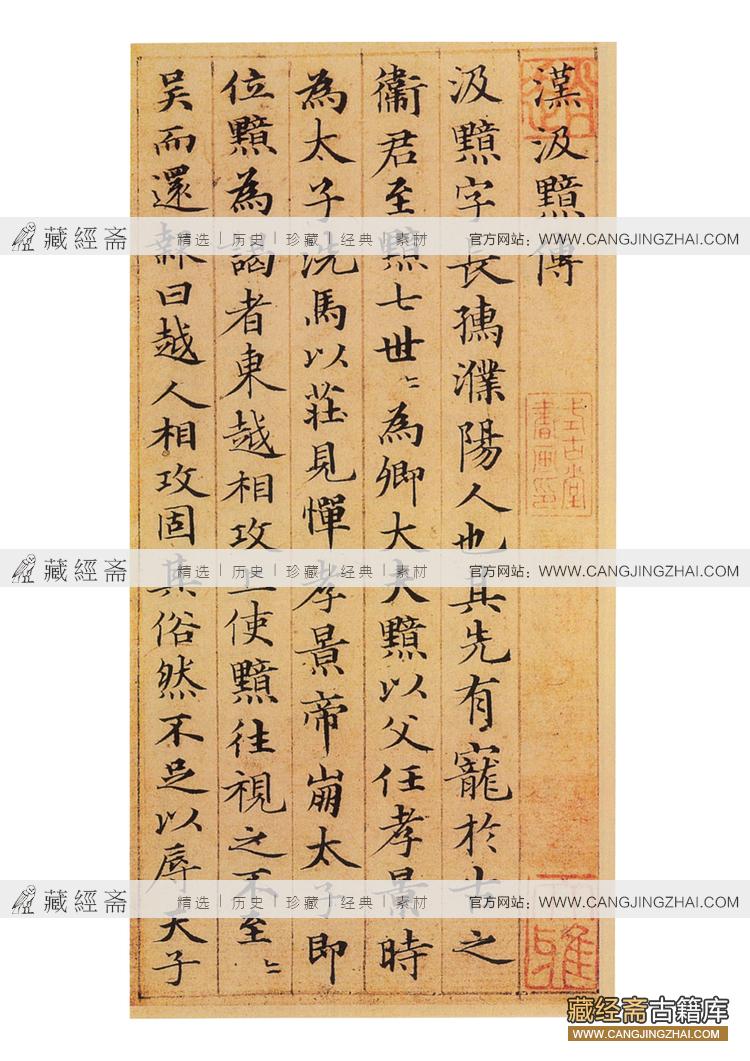 漢汲黯傳
汲黯字長孺濮陽人也其先有寵於古之
衛君至黯七世〻為卿大夫黯以父任孝景時
為太子洗馬以莊見憚孝景帝崩太子即
位黯為謁者東越相攻上使黯往視之不至〻
吳而還報曰越人相攻固其俗然不足以辱天子
式古堂
書畫印
藏經斋 精选 | 历史 | 珍藏 | 经典 | 素材 官方网站：WWW.CANGJINGZHAI.COM
藏經斋 精选 | 历史 | 珍藏 | 经典 | 素材 官方网站：WWW.CANGJINGZHAI.COM
藏經斋 精选 | 历史 | 珍藏 | 经典 | 素材 官方网站：WWW.CANGJINGZHAI.COM
藏经斋古籍库
WWW.CANGJINGZHAI.COM